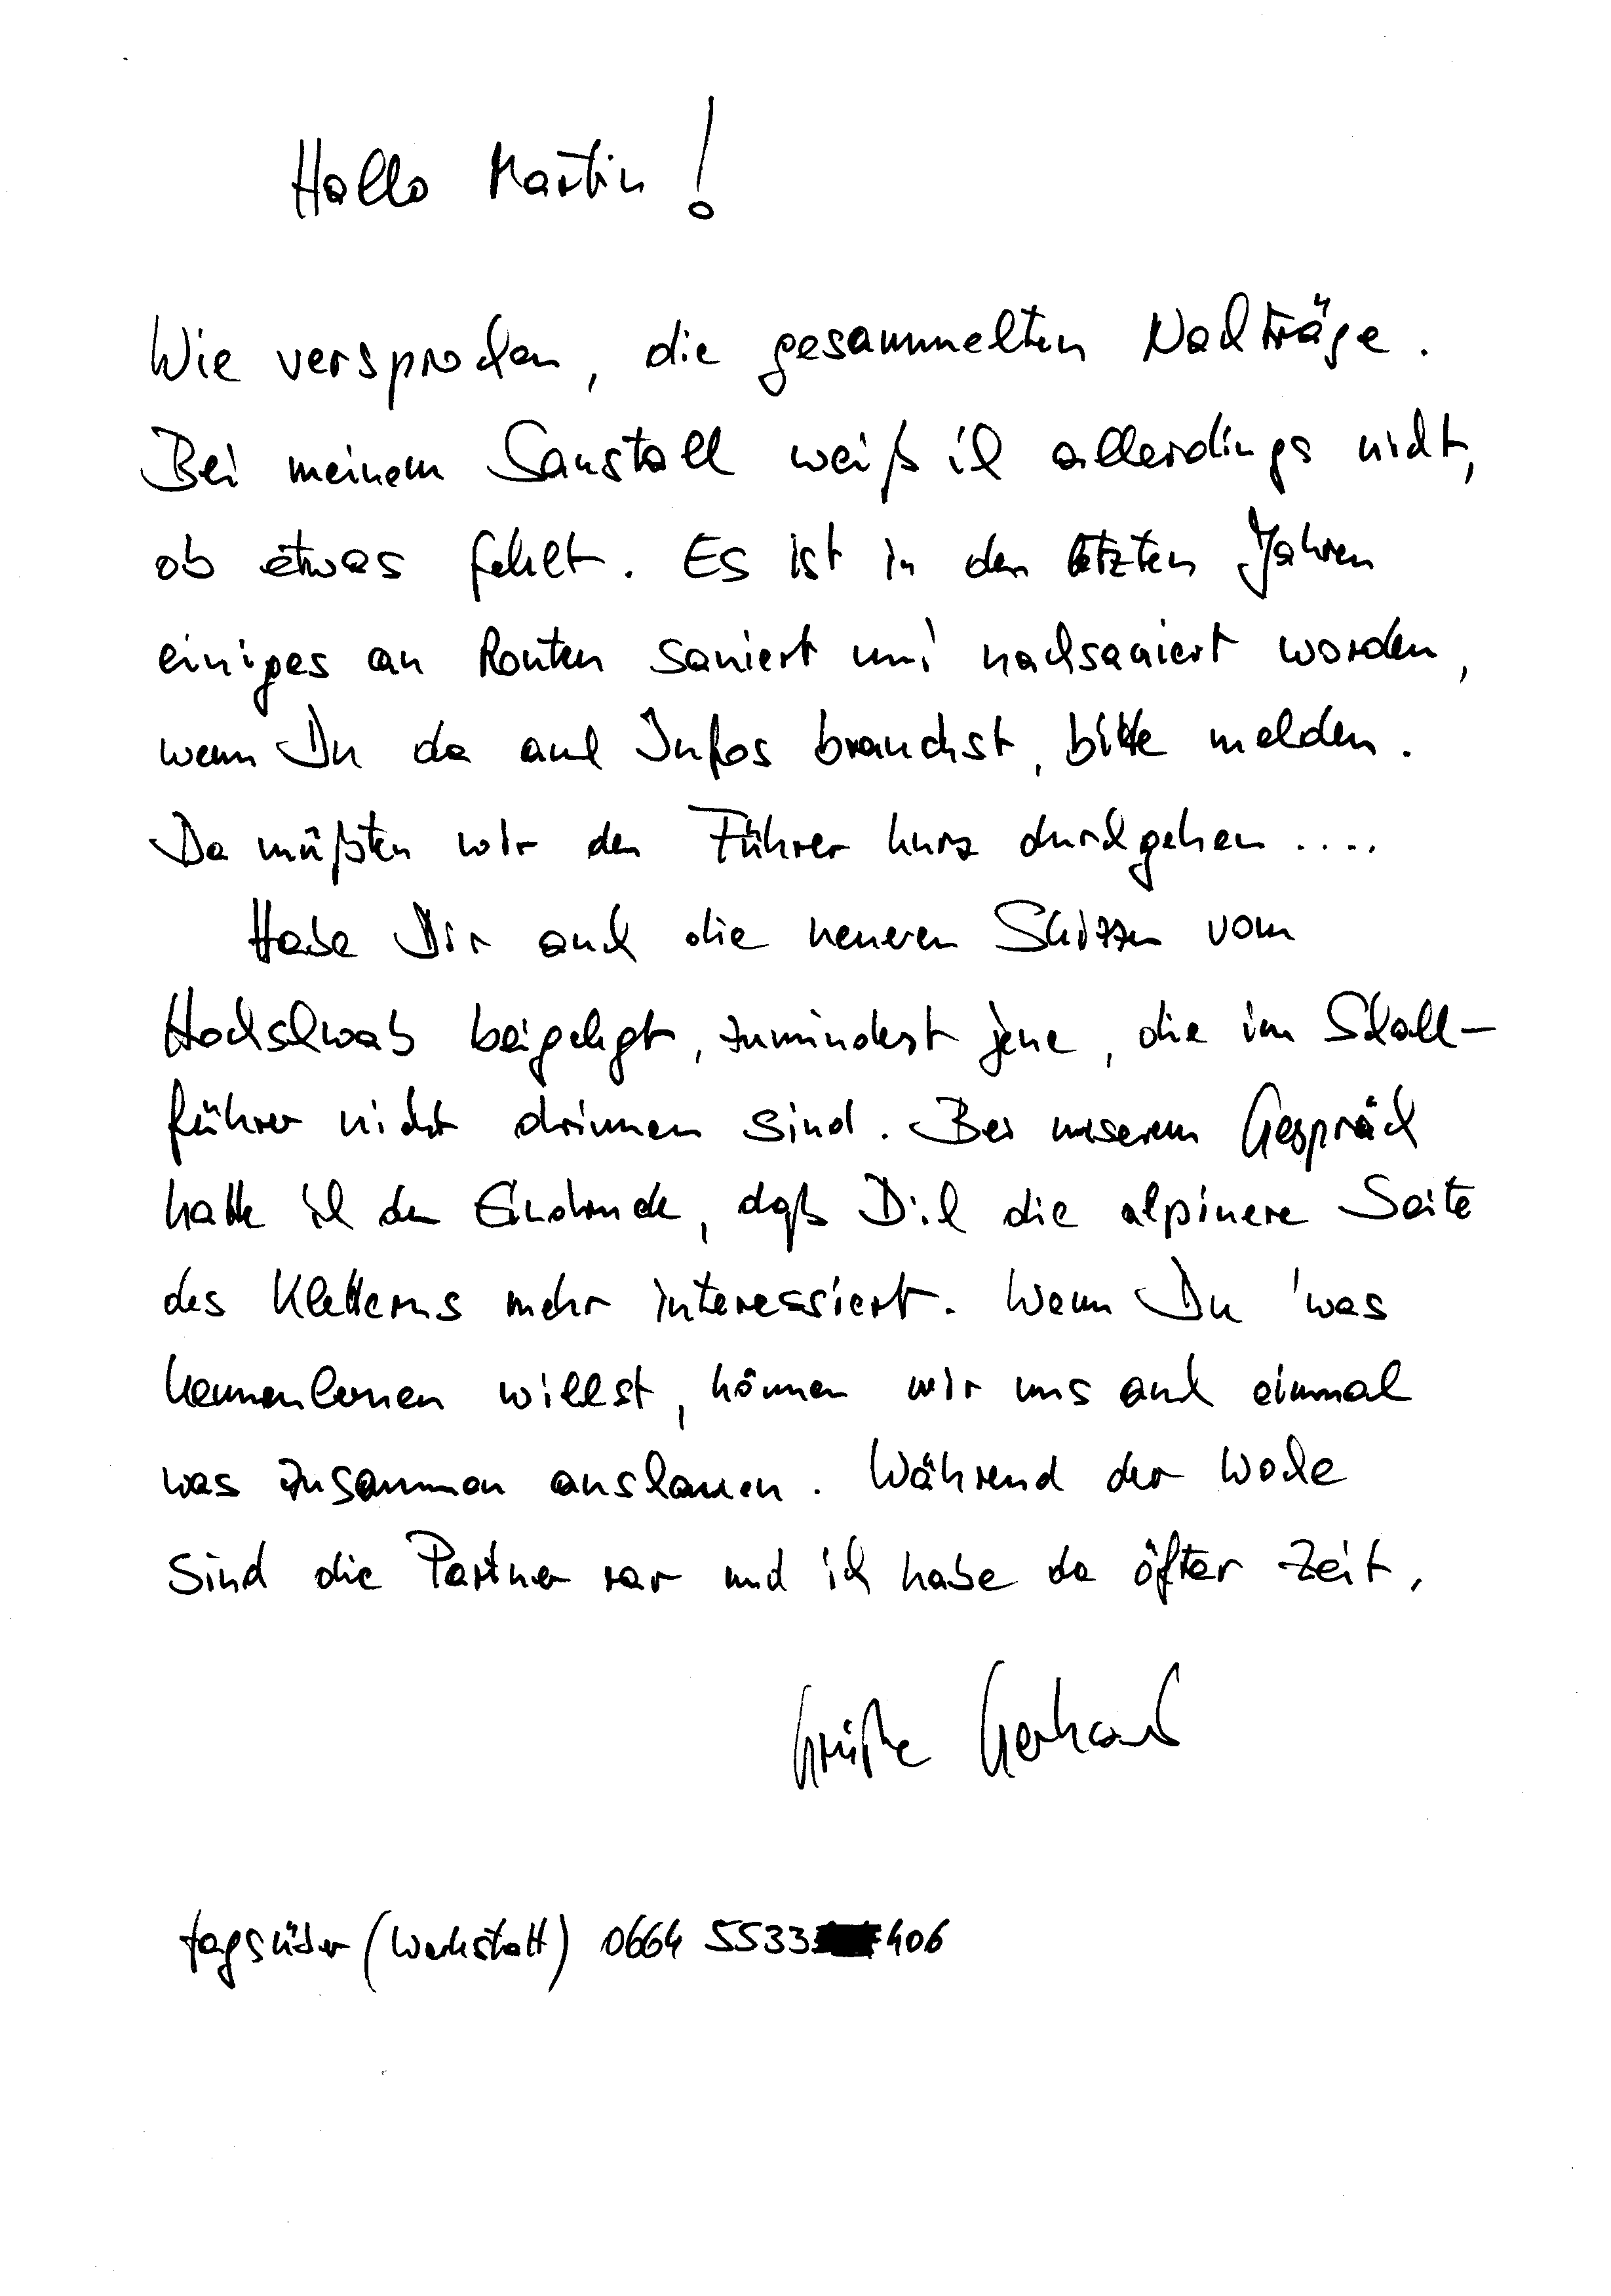 Hallo Martin!
Wie versprochen, die gesammelten Nachträge.
Bei meinem Saustall weiß ich allerdings nicht,
ob etwas fehlt. Es ist in den letzten Jahren
einiges an Routen saniert und nachsaniert worden,
wenn Du da auch Infos brauchst, bitte melden.
Da müßten wir den Führer kurz durchgehen ....
Habe Dir auch die neueren Skizzen vom
Hochschwab beigelegt, zumindest jene, die im Schall-
führer nicht drinnen sind. Bei unserem Gespräch
hatte ich den Eindruck, daß Dich die alpinere Seite
des Kletterns mehr interessiert. Wenn Du 'was
kennenlernen willst, können wir uns auch einmal
was zusammen ausschauen. Während der Woche
sind die Partner rar und ich habe da öfter Zeit.
Grüße Gerhard
tagsüber (Werkstatt) 0664 5533 406